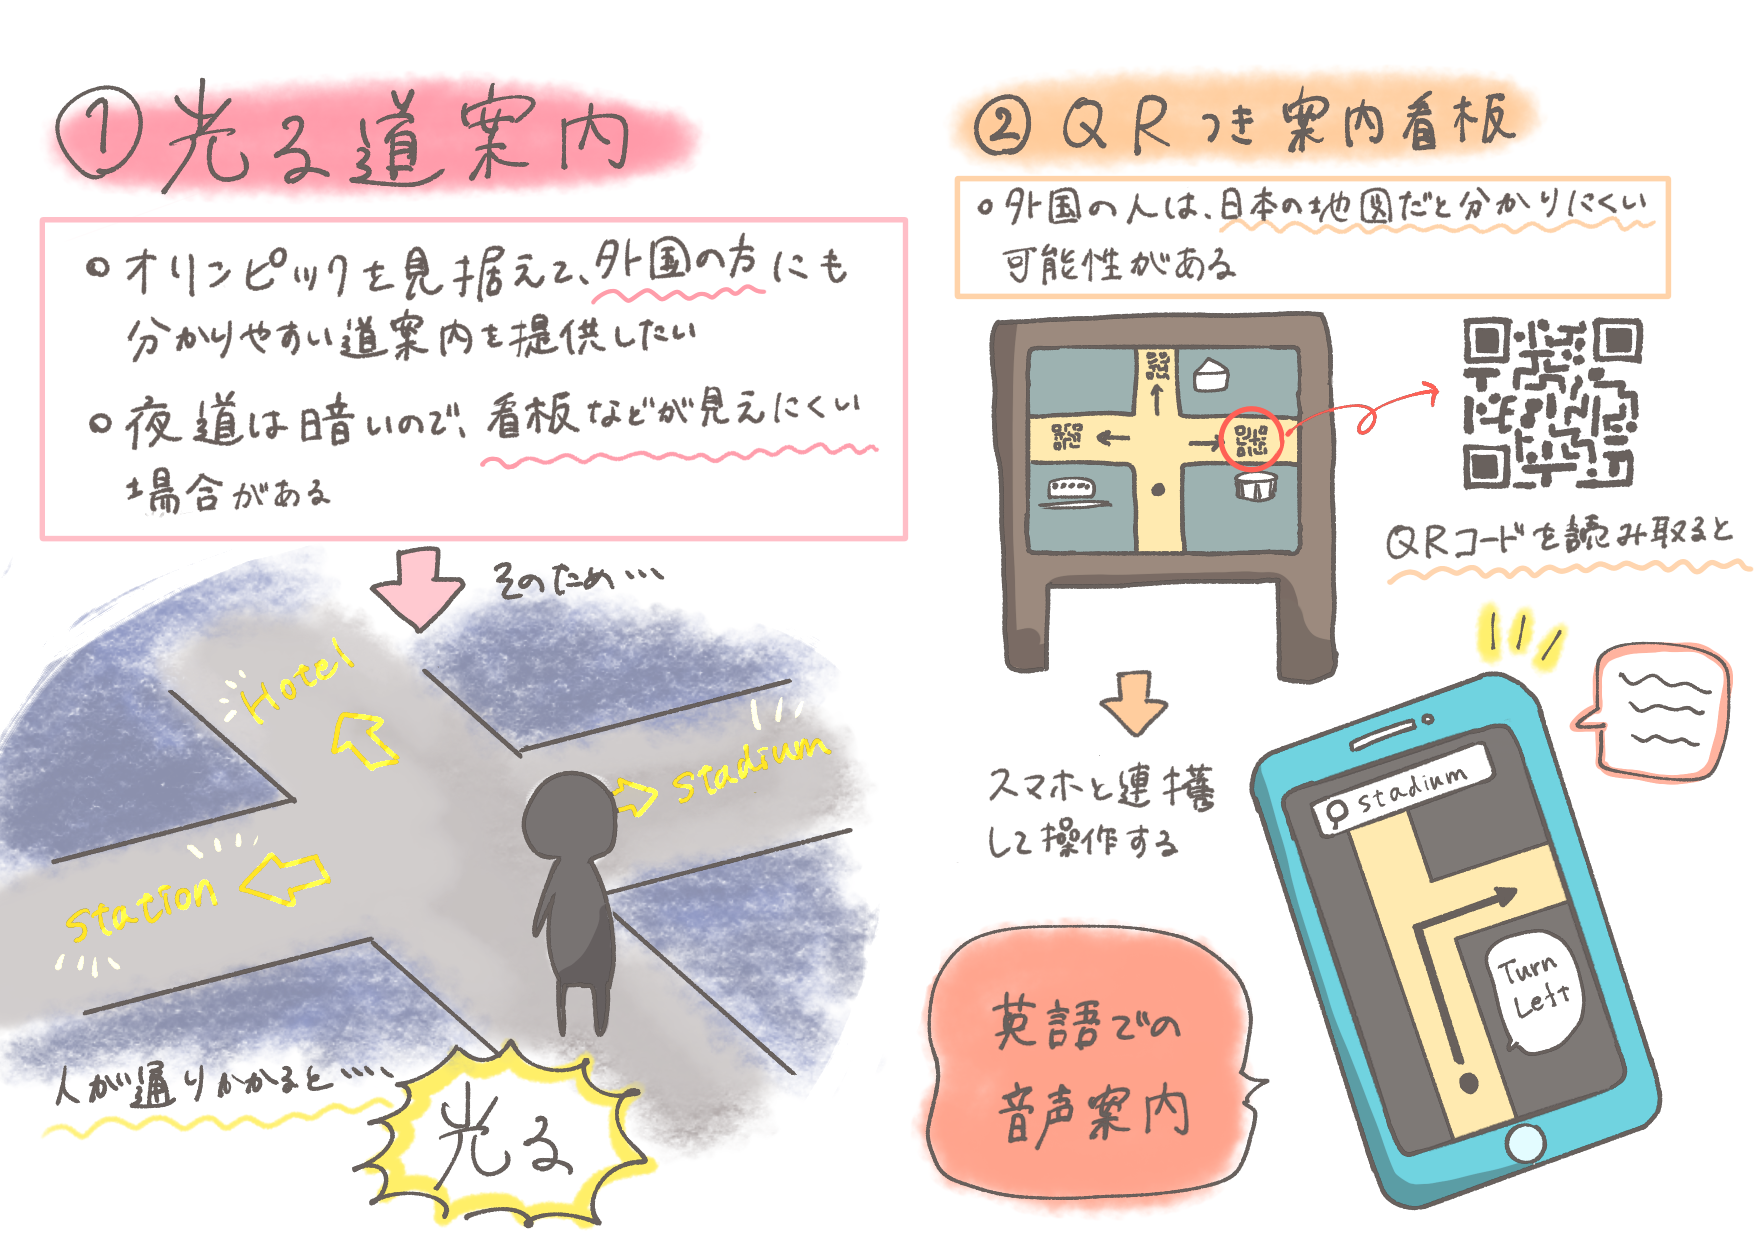 ①光る道案内
○オリンピックを見据えて、外国の方にも
分かりやすい道案内を提供したい
○夜道は暗いので、看板などが見えにくい
場合がある
そのため…
Hotel
stadium
station
人が通りかかると….
光る
②QRつき案内看板
○外国の人は、日本の地図だと分かりにくい
可能性がある
QRコードを読み取ると
スマホと連携
して操作する
stadium
Turn
Left
英語での
音声案内